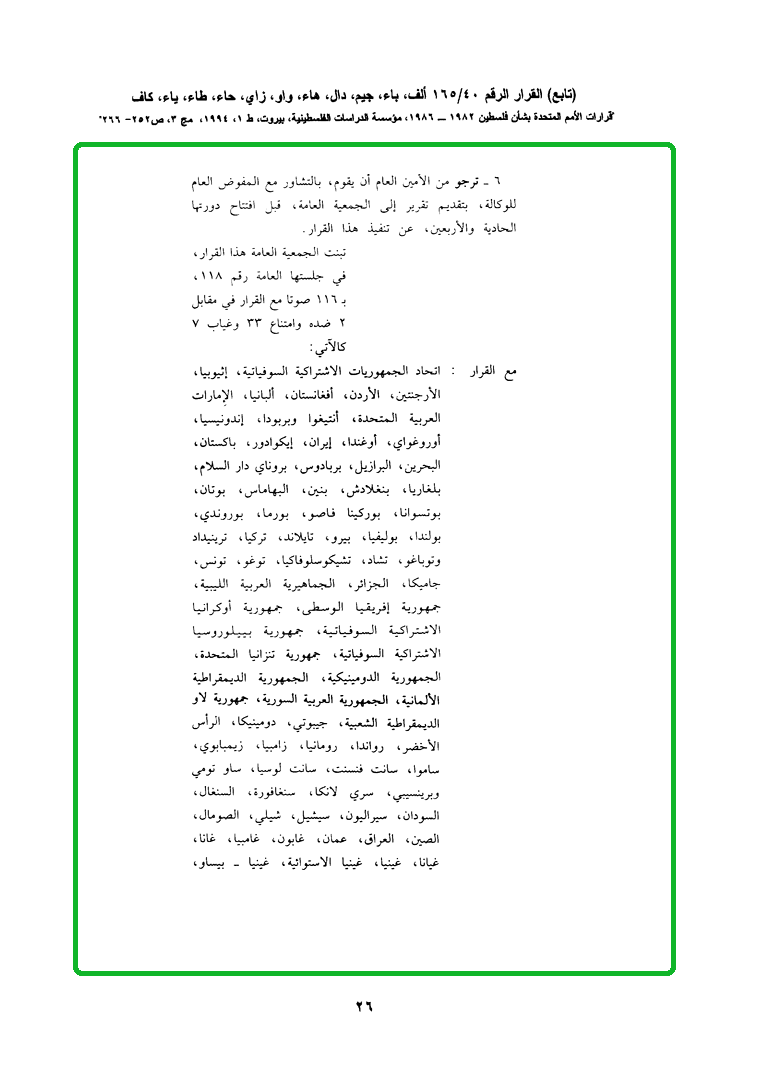 (تابع) القرار الرقم ١٦٥/٤٠ ألف، باء، جيم، دال، هاء، واو، زاي، حاء، طاء، ياء، كاف
"قرارات الأمم المتحدة بشأن فلسطين ١٩٨٢ — ١٩٨٦، مؤسسة الدراسات الفلسطينية، بيروت، ط ١، ١٩٩٤، مج ٣، ص٢٥٢- ٢٦٦"
٦ ـ ترجو من الأمين العام أن يقوم، بالتشاور مع المفوض العام
للوكالة، بتقديم تقرير إلى الجمعية العامة، قبل افتتاح دورتها
الحادية والأربعين، عن تنفيذ هذا القرار.
تبنت الجمعية العامة هذا القرار،
في جلستها العامة رقم ١١٨،
بـ ١١٦ صوتا مع القرار في مقابل
٢ ضده وامتناع ٣٣ وغياب ٧
كالآتي:
مع القرار : اتحاد الجمهوريات الاشتراكية السوفياتية، إثيوبيا،
الأرجنتين، الأردن، أفغانستان، ألبانيا، الإمارات
العربية المتحدة، أنتيغوا وبربودا، إندونيسيا،
أوروغواي، أوغندا، إيران، إيكوادور، باكستان،
البحرين، البرازيل، بربادوس، بروناي دار السلام،
بلغاريا، بنغلادش، بنين، البهاماس، بوتان،
بوتسوانا، بوركينا فاصو، بورما، بوروندي،
بولندا، بوليفيا، بيرو، تايلاند، تركيا، ترينيداد
وتوباغو، تشاد، تشيكوسلوفاكيا، توغو، تونس،
جاميكا، الجزائر، الجماهيرية العربية الليبية،
جمهورية إفريقيا الوسطى، جمهورية أوكرانيا
الاشتراكية السوفياتية، جمهورية بييلوروسيا
الاشتراكية السوفياتية، جمهورية تنزانيا المتحدة،
الجمهورية الدومينيكية، الجمهورية الديمقراطية
الألمانية، الجمهورية العربية السورية، جمهورية لاو
الديمقراطية الشعبية، جيبوتي، دومينيكا، الرأس
الأخضر، رواندا، رومانيا، زامبيا، زيمبابوي،
ساموا، سانت فنسنت، سانت لوسيا، ساو تومي
وبرينسيبي، سري لانكا، سنغافورة، السنغال،
السودان، سيراليون، سيشيل، شيلي، الصومال،
الصين، العراق، عمان، غابون، غامبيا، غانا،
غيانا، غينيا، غينيا الاستوائية، غينيا ـ بيساو،
٢٦